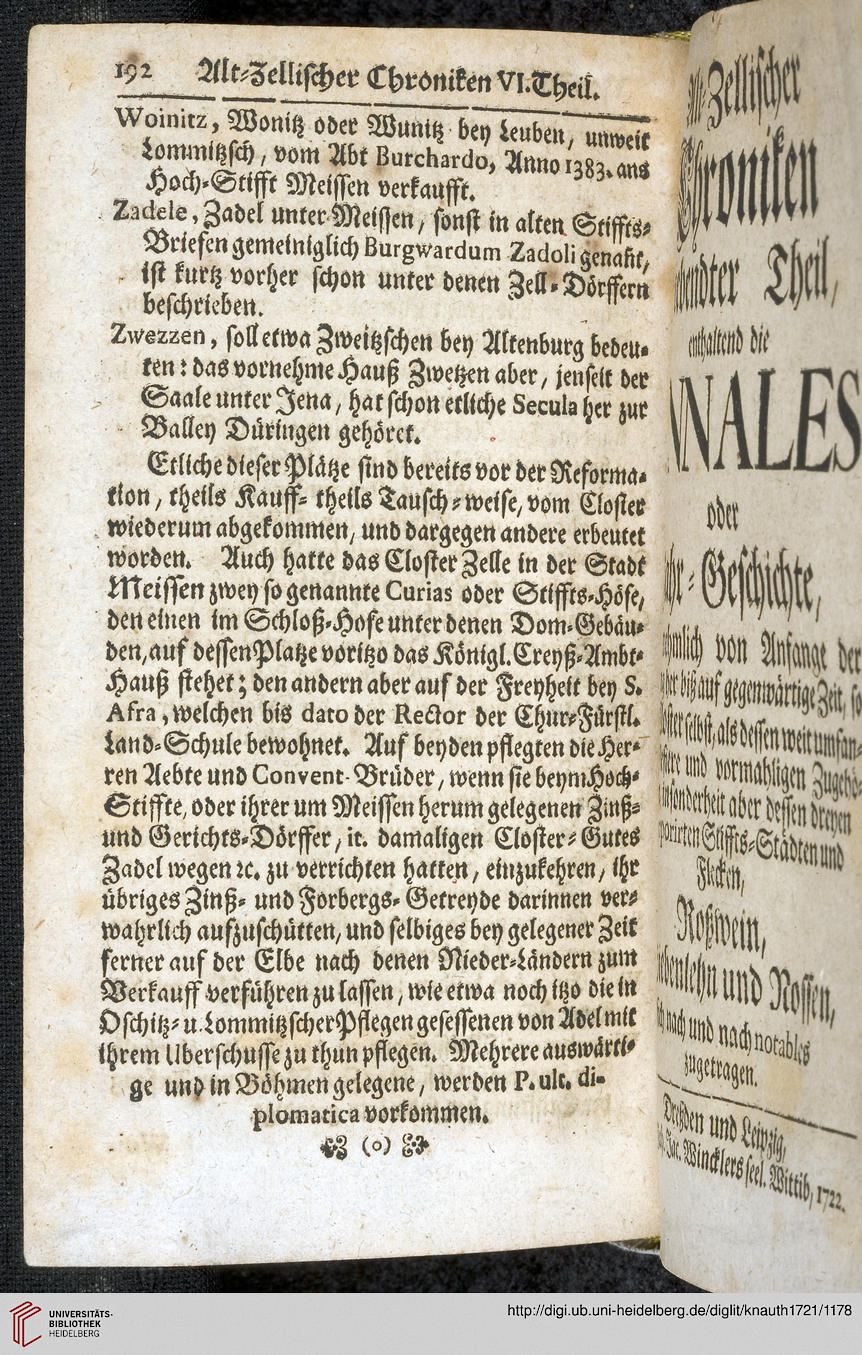 192 Alt-Zellischer Chroniken VI. Theil.
Woinitz, Wonitz oder Wunitz bey Leuben, unweit
Lommitzsch, vom Abt Burchardo, Anno 1383. ans
Hoch-Stifft Meissen verkaufft.
Zadele, Zadel unter Meissen, sonst in alten Stiffts-
Briefen gemeiniglich Burgwardum Zadoli genañt,
ist kurtz vorher schon unter denen Zell-Dörffern
beschrieben.
Zwezzen, soll etwa Zweitzschen bey Altenburg bedeu-
ten: das vornehme Hauß Zwetzen aber, jenseit der
Saale unter Jena, hat schon etliche Secula her zur
Balley Düringen gehöret.
Etliche dieser Plätze sind bereits vor der Reforma-
tion, theils Kauff- theils Tausch-weise, vom Closter
wiederum abgekommen, und dargegen andere erbeutet
worden. Auch hatte das Closter Zelle in der Stadt
Meissen zwey so genannte Curias oder Stiffts-Höfe,
den einen im Schloß-Hofe unter denen Dom-Gebäu-
den, auf dessen Platze voritzo das Königl. Creyß-Ambt-
Hauß stehet; den andern aber auf der Freyheit bey S.
Afra, welchen bis dato der Rector der Chur-Fürstl.
Land-Schule bewohnet. Auf beyden pflegten die Her-
ren Aebte und Convent-Brüder, wenn sie beym Hoch-
Stiffte, oder ihrer um Meissen herum gelegenen Zinß-
und Gerichts-Dörffer, it. damaligen Closter-Gutes
Zadel wegen ꝛc. zu verrichten hatten, einzukehren, ihr
übriges Zinß- und Forbergs-Getreyde darinnen ver-
wahrlich aufzuschütten, und selbiges bey gelegener Zeit
ferner auf der Elbe nach denen Nieder-Ländern zum
Verkauff verführen zu lassen, wie etwa noch itzo die in
Oschitz- u. Lommitzscher Pflegen gesessenen von Adel mit
ihrem Uberschusse zu thun pflegen. Mehrere auswärti-
ge und in Böhmen gelegene, werden P. ult. di-
plomatica vorkommen.
(o)
Zellischer
Chroniken
Theil,
enthaltend die
NNALES
oder
Geschichte,
von Anfange der
biß auf gegenwärtige Zeit, so
selbst, als dessen weit umfan-
und vormahligen Zugehö-
insonderheit aber dessen dreyen
Stiffts-Städten und
Flecken,
Roßwein,
und Nossen,
nach und nach notables
zugetragen.
Dreßden und Leipzig,
Jac. Wincklers seel. Wittib, 1722.
UNIVERSITÄTS-
BIBLIOTHEK
HEIDELBERG
http://digi.ub.uni-heidelberg.de/diglit/knauth1721/1178